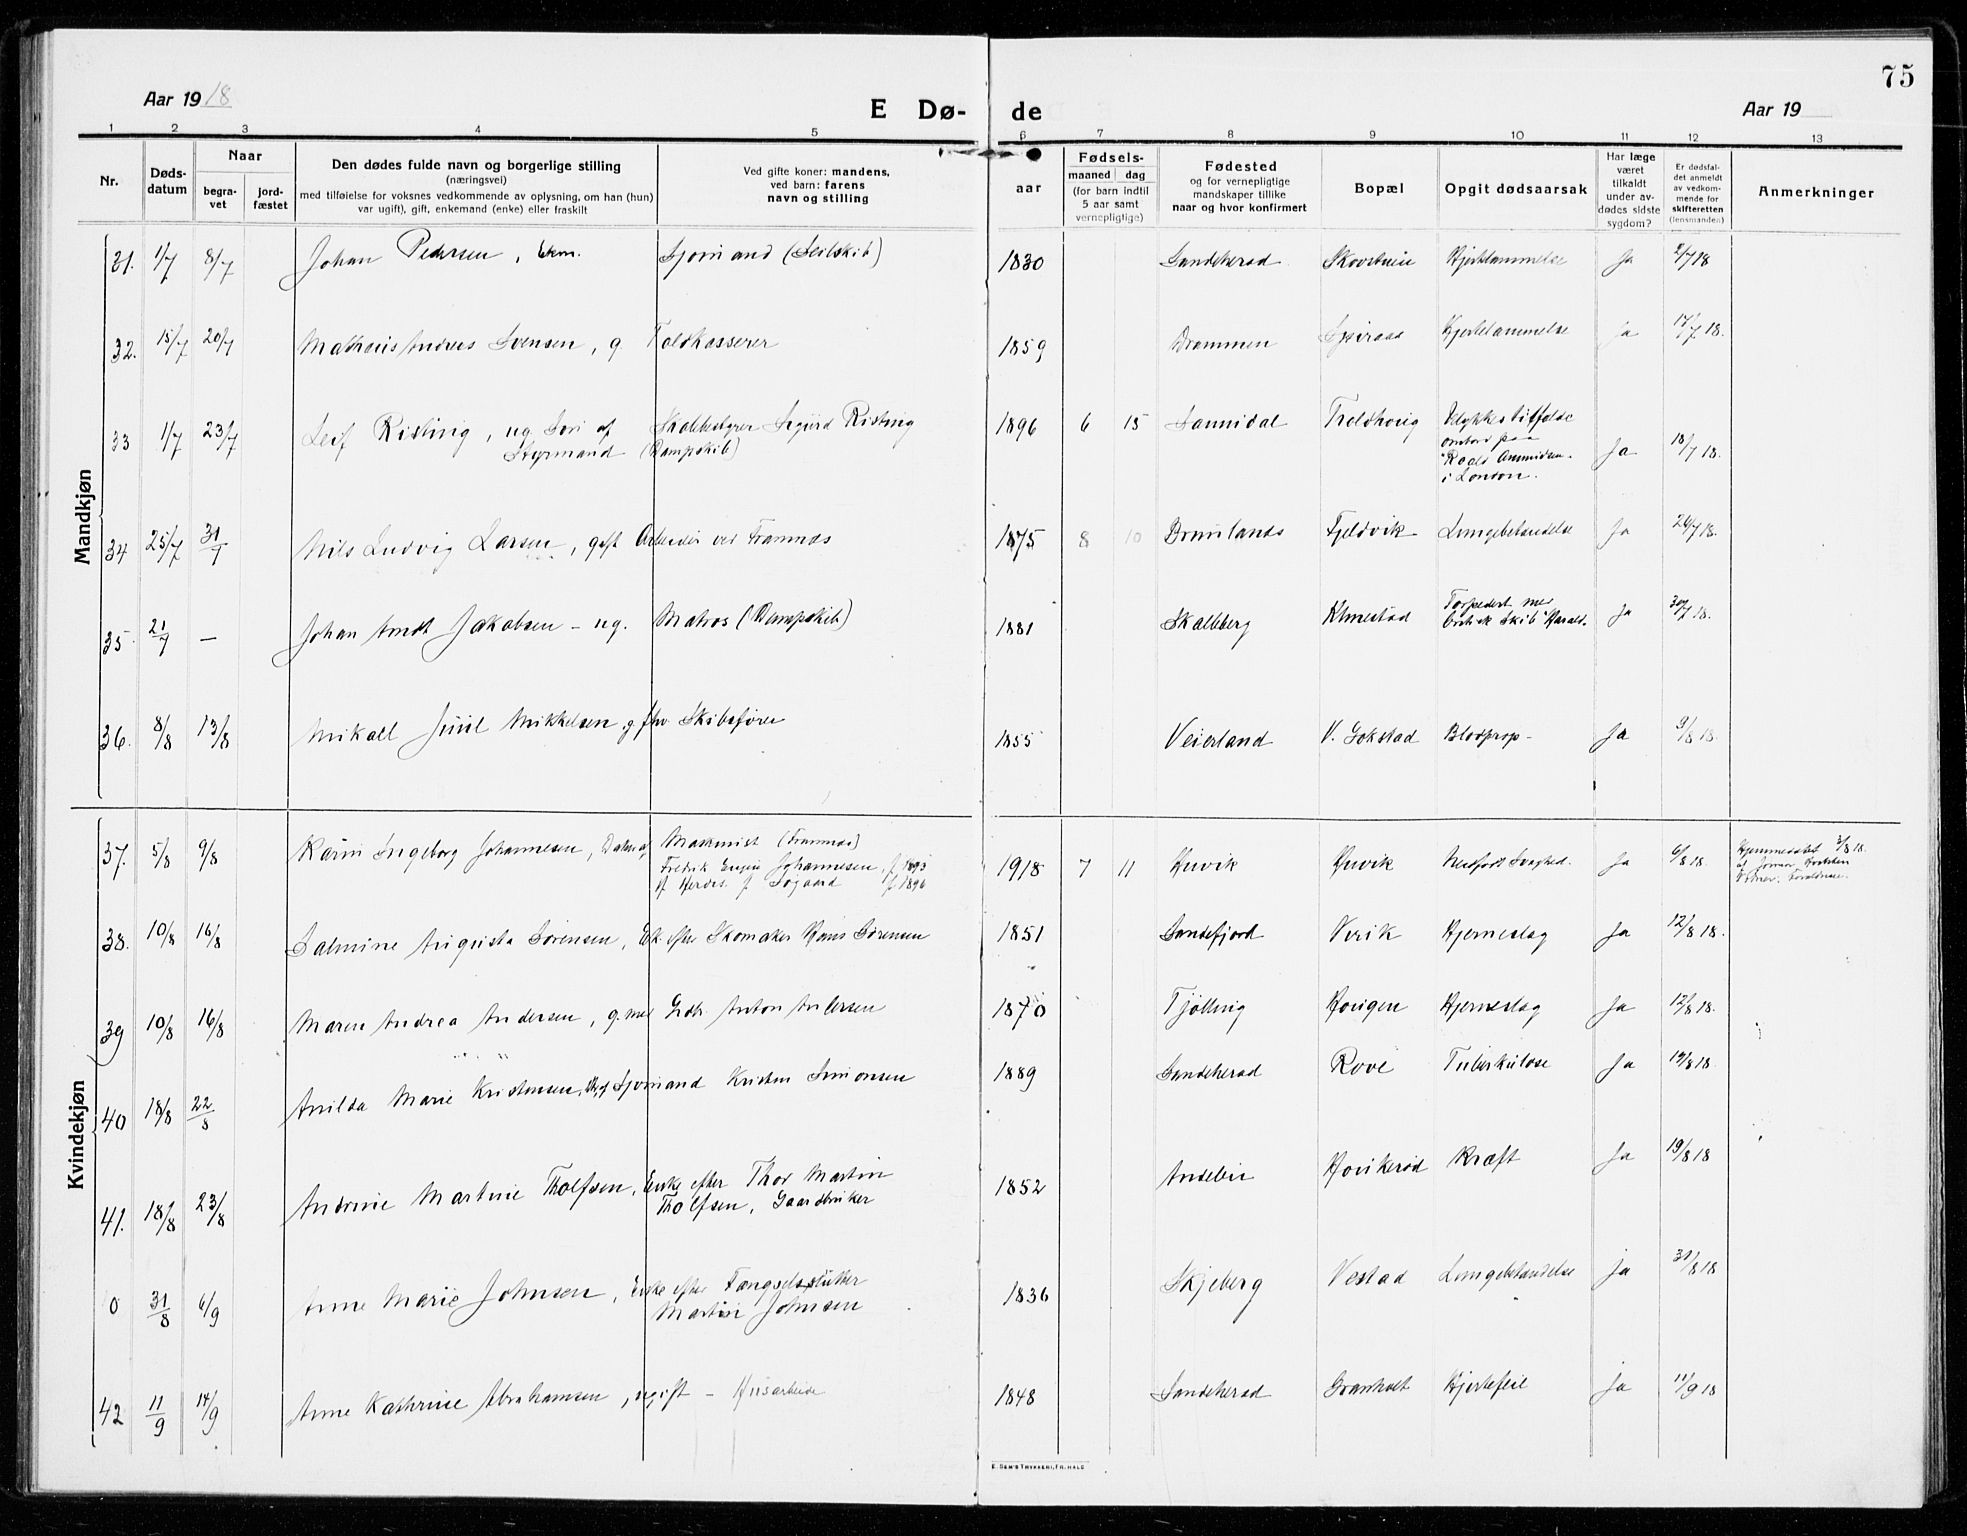 75
Aar 1918
E Dø-
de
Aar 19
1 2 3 4 5 6 7 8 9 10 11 12 13
Nr.
Døds-
datum
Naar
begra-
vet
jord-
fæstet
Den dødes fulde navn og borgerlige stilling
(næringsvei)
med tilføielse for voksnes vedkommende av oplysning, om han (hun)
var ugift), gift, enkemand (enke) eller fraskilt
Ved gifte koner: mandens,
ved barn: farens
navn og stilling
aar
Fødsels-
maaned dag
(for barn indtil
5 aar samt
vernepligtige)
Fødested
og for vernepligtige
mandskaper tillike
naar og hvor konfirmert
Bopæl
Opgit dødsaarsak
Har læge
været
tilkaldt
under av-
dødes sidste
sygdom?
Er dødsfal-
det anmeldt
av vedkom-
mende for
skifteretten
(lensmanden)
Anmerkninger
Mandkjøn
31. 1/7 8/7 Johan Pedersen, Ekm. Sjømand (Seilskib) 1830 Sandeherad Hjertelammelse Ja 2/7 18
32. 15/7 20/7 Mathæus Andreas Svensen, g. Toldkasserer 1859 Drammen Hjertelammelse ja 17/7 18.
33 1/7 23/7 Leif Risting, ug. Søn af Skolebestyrer Sigurd Risting 1896 6 15 Sannidal Troldhaug Ulykkestilfælde
Styrmand (Dampskib) ombord paa
"Roald Amundsen" Ja 18/7 18.
i London.
34 25/7 31/7 Nils Ludvig Larsen, gift Arbeider ved Framnæs 1875 8 10 Brunlanes Fjeldvik Lungebetændelse Ja 26/7 18.
35 21/7 — Johan Arndt Jakobsen – ug. Matros (Dampskib) 1881 Skalleberg Klmestad Torpedert med Ja 30/7 18.
britisk Skib "Harald"
36. 8/8 13/8 Mikael Juul Mikkelsen, g. fhv. Skibsfører 1855 Veierland V. Gokstad Blodprop – Ja 9/8 18.
Kvindekjøn
37. 5/8 9/8 Karin Ingeborg Johannesen, Datter af Maskinist (Framnæs) 1918 7 11 Huvik Huvik Medfødt Svaghed. Ja 6/8 18. Hjemmedøbt 3/8 18.
Fredrik Eugen Johannesen, f. 1893
af Jordmor
f. Søgaard f. 1896
38. 10/8 16/8 Salmine Augusta Sørensen, Ek. efter Skomaker Hans Sørensen 1851 Sandefjord Virik Hjerneslag Ja 12/8 18.
39 10/8 16/8 Maren Andrea Andersen, g. med Gdbr. Anton Andersen 1870 Tjølling Haugen Hjerneslag Ja 12/8 18.
40 18/8 22/8 Anilda Marie Kristensen, Sjømand Kristen Simonsen 1889 Sandeherad Rove Tuberkulose Ja 19/8 18.
41. 18/8 23/8 Andrine Martine Tholfsen, Enke efter Thor Martin 1852 Andebu Hovikerød Kræft Ja 19/8 18
Tholfsen, Gaardbruker
0 31/8 6/9 Anne Marie Johnsen, Enke efter Fængselsslutter 1836 Skjeberg Vestad Lungebetændelse Ja 31/8 18
Martin Johnsen
42 11/9 14/9 Anne Kathrine Abrahamsen, ugift – Husarbeide 1848 Sandeherad Granholt Hjertefeil Ja 11/9 18
E. SEM'S TRYKKERI, FR.HALD